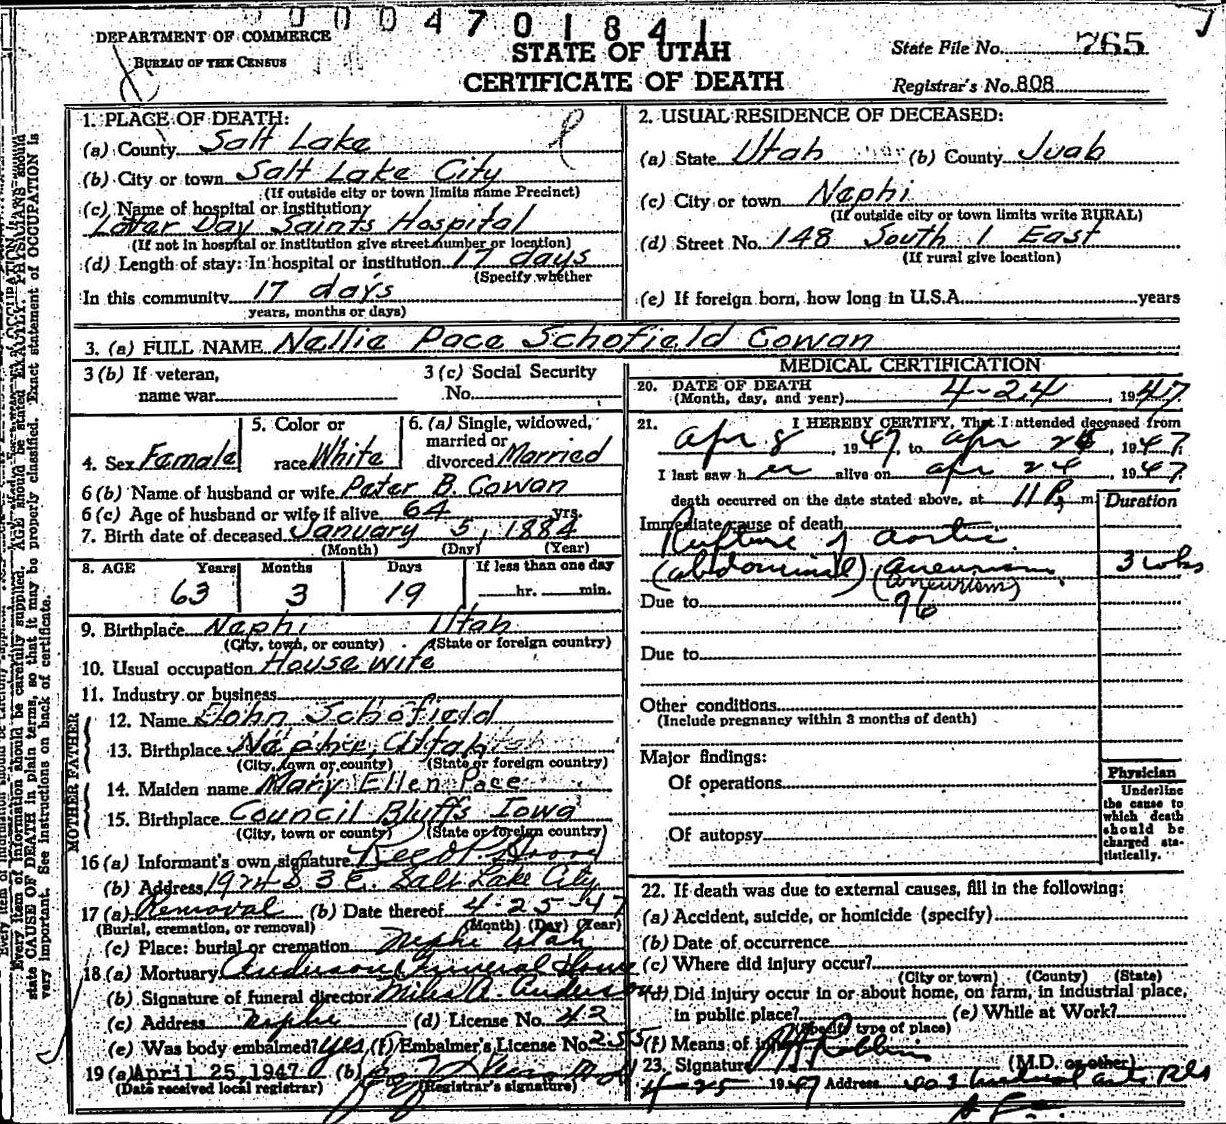 0004701841
DEPARTMENT OF COMMERCE
BUREAU OF THE CENSUS
STATE OF UTAH
CERTIFICATE OF DEATH
State File No. 765
Registrar's No. 808
1. PLACE OF DEATH:
(a) County Salt Lake
(b) City or town Salt Lake City
(If outside city or town limits name Precinct)
(c) Name of hospital or institution:
Latter Day Saints Hospital
(If not in hospital or institution give street number or location)
(d) Length of stay: In hospital or institution 17 days
(Specify whether
In this community 17 days
years, months or days)
2. USUAL RESIDENCE OF DECEASED:
(a) State Utah (b) County Juab
(c) City or town Nephi
(If outside city or town limits write RURAL)
(d) Street No. 148 South 1 East
(If rural give location)
(e) If foreign born, how long in U.S.A. years
3. (a) FULL NAME Nellie Pace Schofield Cowan
3 (b) If veteran,
name war
3 (c) Social Security
No.
4. Sex Female
5. Color or
race White
6. (a) Single, widowed,
married or
divorced Married
6 (b) Name of husband or wife Peter B. Cowan
6 (c) Age of husband or wife if alive 64 yrs.
7. Birth date of deceased January 5, 1884
(Month) (Day) (Year)
8. AGE Years Months Days If less than one day
63 3 19 hr. min.
9. Birthplace Nephi Utah
(City, town, or county) (State or foreign country)
10. Usual occupation House wife
11. Industry or business
FATHER
12. Name John Schofield
13. Birthplace Nephi, Utah
(City, town or county) (State or foreign country)
MOTHER
14. Maiden name Mary Ellen Pace
15. Birthplace Council Bluffs Iowa
(City, town or county) (State or foreign country)
16 (a) Informant's own signature
(b) Address 1924 S. 3 E. Salt Lake City
17 (a) Removal (b) Date thereof 4-25-47
(Burial, cremation, or removal) (Month) (Day) (Year)
(c) Place: burial or cremation Nephi Utah
18 (a) Mortuary Anderson Funeral Home
(b) Signature of funeral director Miles A. Anderson
(c) Address Nephi (d) License No. 42
(e) Was body embalmed? yes (f) Embalmer's License No. 255
19 (a) April 25, 1947 (b)
(Date received local registrar) (Registrar's signature)
MEDICAL CERTIFICATION
20. DATE OF DEATH
(Month, day, and year) 4-24, 1947
21. I HEREBY CERTIFY, That I attended deceased from
Apr 8, 1947, to Apr 24, 1947.
I last saw her alive on Apr 24, 1947.
death occurred on the date stated above, at 11 P. m.
Duration
Immediate cause of death
Rupture of aortic
(abdominal) aneurism 3 wks
(aneurism)
Due to 96
Due to
Other conditions
(Include pregnancy within 3 months of death)
Major findings:
Of operations
Of autopsy
Physician
Underline
the cause to
which death
should be
charged sta-
tistically.
22. If death was due to external causes, fill in the following:
(a) Accident, suicide, or homicide (specify)
(b) Date of occurrence
(c) Where did injury occur?
(City or town) (County) (State)
(d) Did injury occur in or about home, on farm, in industrial place,
in public place? (e) While at Work?
(Specify type of place)
(f) Means of injury
23. Signature Robbins (M.D. or other)
4-25 1947 Address
state CAUSE OF DEATH in plain terms, so that it may be properly classified. Exact statement of OCCUPATION is
very important. See instructions on back of certificate.